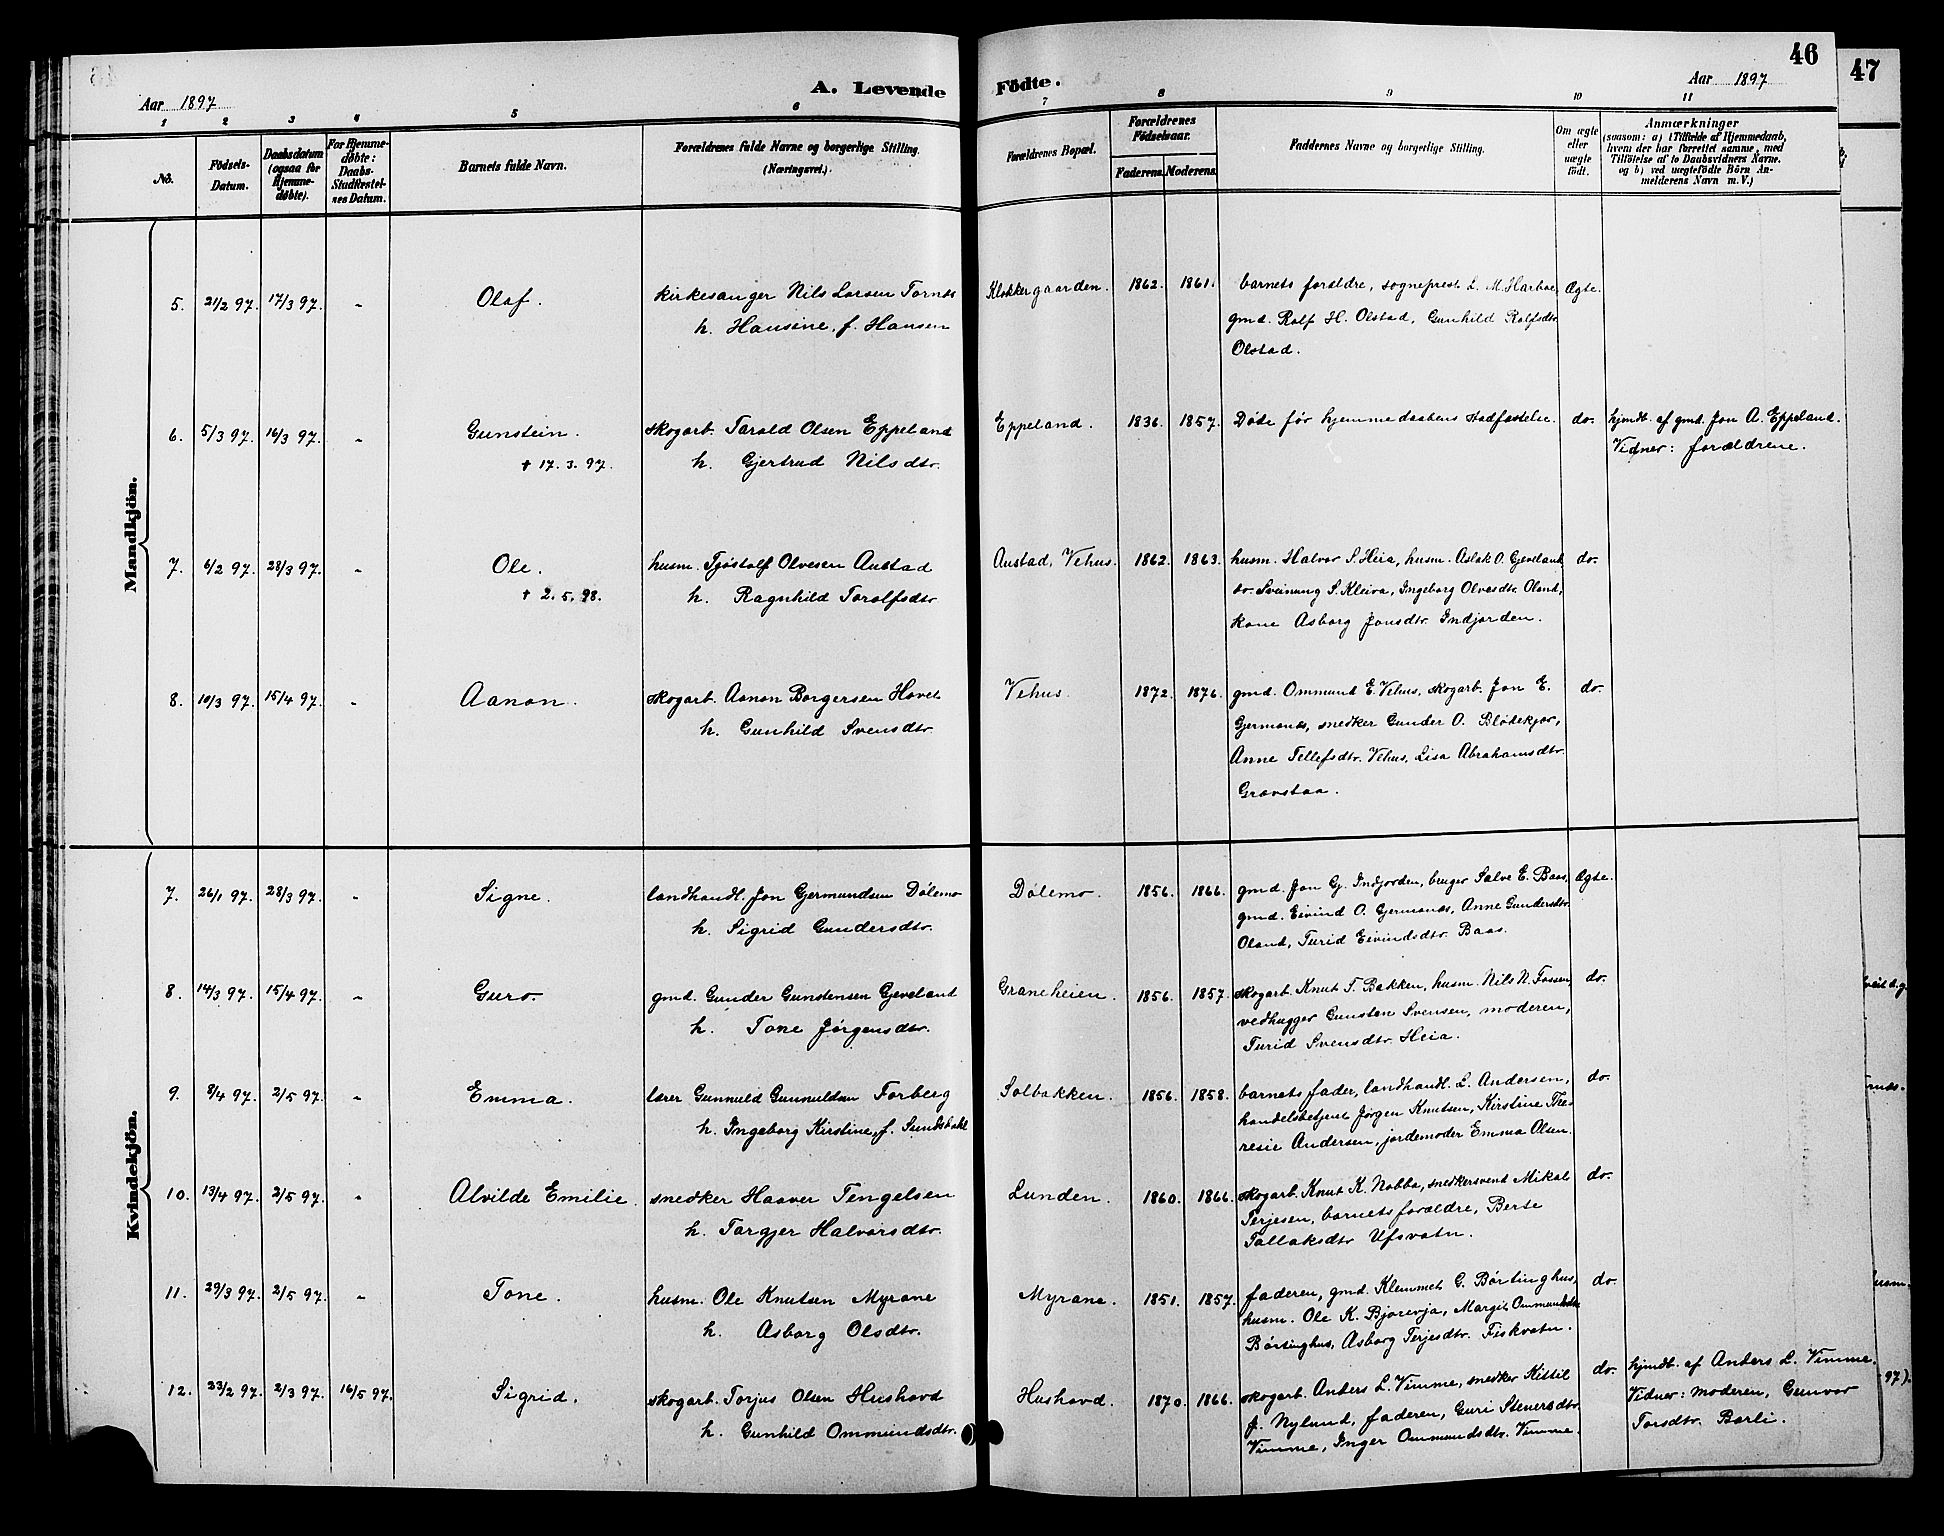 46
47
A. Levende Födte.
Aar 1897
Aar 1897
1 2 3 4 5 6 7 8 9 10 11
No.
Födsels-Datum.
Daabsdatum (ogsaa for Hjemmedøbte).
For Hjemmedøbte: Daabs-Stadfæstelsens Datum.
Barnets fulde Navn.
Forældrenes fulde Navne og borgerlige Stilling.
(Næringsvei).
Forældrenes Bopæl.
Forældrenes Födselsaar.
Faderens. Moderens.
Faddernes Navne og borgerlige Stilling.
Om ægte eller uægte födt.
Anmærkninger
(saasom: a) i Tilfælde af Hjemmedaab,
hvem der har forrettet samme, med
Tilföielse af to Daabsvidners Navne.
og b) ved uægtefödte Börn An-
melderens Navn m. V.)
Mandkjön.
5. 21/2 97. 17/3 97. - Olaf. kirkesanger Nils Larsen Tornes Klokkergaarden. 1862. 1861. barnets forældre, sogneprest L. M. Harboe, Ægte.
h. Hansine, f. Hansen gmd. Rolf H. Olstad, Gunhild Rolfsdtr.
Olstad.
6. 5/3 97. 16/3 97. - Gunstein. skogarb. Tarald Olsen Eppeland Eppeland. 1836. 1857. Døde før hjemmedaabens stadfæstelse. do. hjmdt. af gmd. Jon A. Eppeland.
† 17. 3. 97. h. Gjertrud Nilsdtr. Vidner: forældrene.
7. 6/2 97. 28/3 97. - Ole. husm. Tjøstolf Olvesen Austad Austad, Vehus. 1862. 1863. husm. Halvor S. Heia, husm. Aslak O. Gjeveland, do.
† 2. 5. 98. h. Ragnhild Torolfsdtr. do. Sveinung S. Kleiva, Ingeborg Olvesdtr. Oland,
kone Asborg Jonsdtr. Indjorden.
8. 10/3 97. 15/4 97. - Aanon. skogarb. Aanon Borgersen Hovet Vehus. 1872. 1876. gmd. Ommund E. Vehus, skogarb. Jon E. do.
h. Gunhild Svensdtr. Gjermonæs, snedker Gunder O. Bløtekjær,
Anne Tellefsdtr. Vehus, Lisa Abrahamsdtr.
Grovstaa.
Kvindekjön.
7. 26/1 97. 28/3 97. - Signe. landhandl. Jon Gjermundsen Dølemo Dølemo. 1856. 1866. gmd. Jon Gj. Indjorden, bruger Salve E. Baas, Ægte.
h. Sigrid Gundersdtr. gmd. Eivind O. Gjermonæs, Anne Gundersdtr.
Oland, Turid Eivindsdtr. Baas.
8. 14/3 97. 15/4 97. - Guro. gmd. Gunder Gunstensen Gjeveland Graneheien. 1856. 1857. skogarb. Knut T. Bakken, husm. Nils N. Fossen, do.
h. Tone Jørgensdtr. vedhugger Gunsten Svensen, moderen,
Turid Svensdtr. Heia.
9. 8/4 97. 2/5 97. - Emma. lærer Gunnuld Gunnuldsen Forberg Solbakken. 1856. 1858. barnets fader, landhandl. L. Andersen, do.
h. Ingeborg Kirstine, f. handelsbetjent Jørgen Knutsen, Kirstine The-
resie Andersen, jordemoder Emma Olsen.
10. 13/4 97. 2/5 97. - Alvilde Emilie. snedker Haaver Tengelsen Lunden. 1860. 1866. skogarb. Knut K. Nabba, snedkersvend Mikal do.
h. Targjer Halvorsdtr. Terjesen, barnets forældre, Berte
Tallaksdtr Ufsvatn.
11. 29/3 97. 2/5 97. - Tone. husm. Ole Knutsen Myrane Myrane. 1851. 1857. faderen, gmd. Klemmet G. Børtinghus, do.
h. Asborg Olsdtr. husm. Ole K. Bjorevja, Margit Ommundsdtr
Børtinghus, Asborg Terjesdtr. Fiskvatn.
12. 23/2 97. 2/3 97. 16/5 97. Sigrid. skogarb. Torjus Olsen Hushovd Hushovd. 1870. 1866. skogarb. Anders L. Vimme, snedker Kittil do. hjmdt. af Anders L. Vimme.
h. Gunhild Ommundsdtr. J. Nylund, faderen, Guri Stenersdtr. Vidner: moderen, Gunvor
Vimme, Inger Ommundsdtr. Vimme. Torsdtr. Borli.
97).